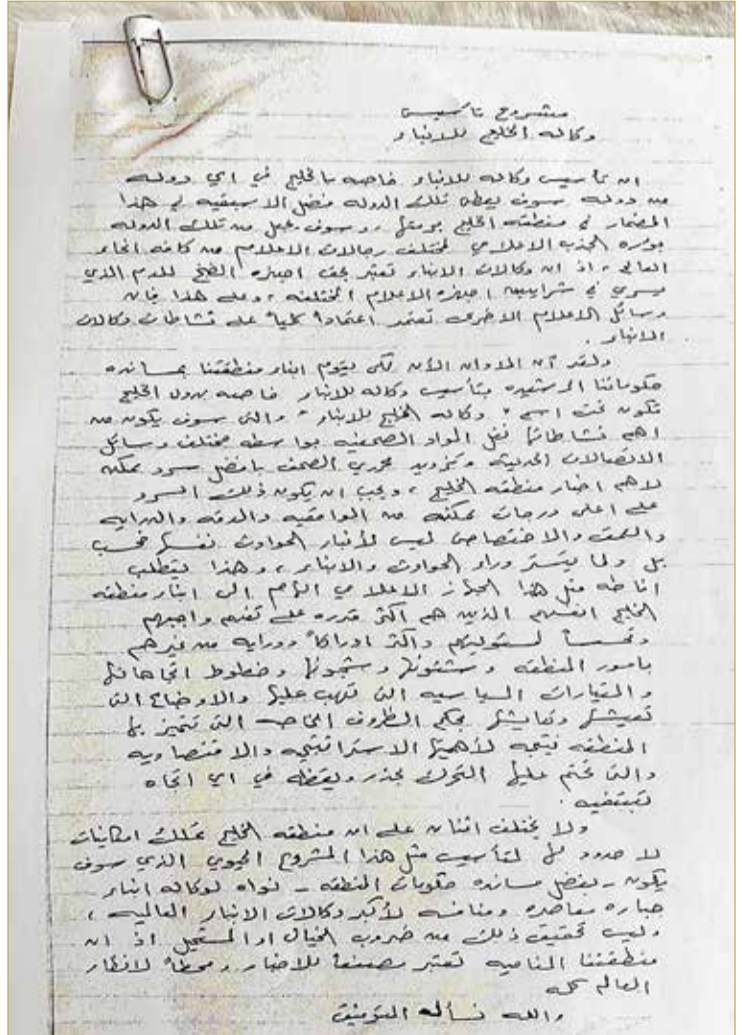 مشروع تأسيس
وكاله الخليج للانباء
ان تأسيس وكاله للانباء خاصه بالخليج في اي دوله
من دوله سوف يعطى تلك الدوله فضل الاسبقيه في هذا
المضمار في منطقه الخليج بومتها، وسوف يجعل من تلك الدوله
بؤره الجذب الاعلامي لمختلف رجالات الاعلام من كافه انحاء
العالم، اذ ان وكالات الانباء تعتبر بحق اجهزه الضخ للدم الذي
يسري في شرايين اجهزه الاعلام المختلفه، وعلى هذا فان
وسائل الاعلام الاخرى تعتمد اعتماداً كلياً على نشاطات وكالات
الانباء.
ولقد آن الاوان الآن لكى يقوم ابناء منطقتنا بمسانده
حكوماتنا الرشيده بتأسيس وكاله للانباء خاصه بدول الخليج
تكون تحت اسم "وكاله الخليج للانباء" والتى سوف يكون من
اهم نشاطاتها نقل المواد الصحفيه بواسطه مختلف وسائل
الاتصالات الحديثه وتزويد محرري الصحف بافضل سرد ممكن
لاهم اخبار منطقه الخليج، ويجب ان يكون ذلك السرد
على اعلى درجات ممكنه من الواقعيه والدقه والدرايه
والعمق والاختصاص ليس لأخبار الحوادث نفسها فحسب
بل ولما يتستر وراء الحوادث والانباء، وهذا يتطلب
اناطه مثل هذا الجهاز الاعلامي الهام الى ابناء منطقه
الخليج انفسهم الذين هم اكثر قدره على تفهم واجبهم
وتحسساً لمسئوليتهم واكثر ادراكاً ودرايه من غيرهم
بامور المنطقه وشئونها وشجونها وخطوط اتجاهاتها
والتيارات السياسيه التى تهب عليها والاوضاع التى
تعيشها وتعايشها بحكم الظروف الخاصه التى تتميز بها
المنطقه نتيجه لأهميتها الاستراتيجيه والاقتصاديه
والتى تحتم عليها التحرك بحذر ويقظه في اي اتجاه
تبتغيه.
ولا يختلف اثنان على ان منطقه الخليج تملك امكانيات
لا حدود لها لتأسيس مثل هذا المشروع الحيوي الذي سوف
يكون - بفضل مسانده حكومات المنطقه - نواه لوكاله انباء
جباره معاصره ومنافسه لأكبر وكالات الانباء العالميه،
وليس تحقيق ذلك من ضروب الخيال او المستحيل اذ ان
منطقتنا الناميه تعتبر مصنعاً للاخبار ومحطاً لانظار
العالم كله
والله نسأله التوفيق